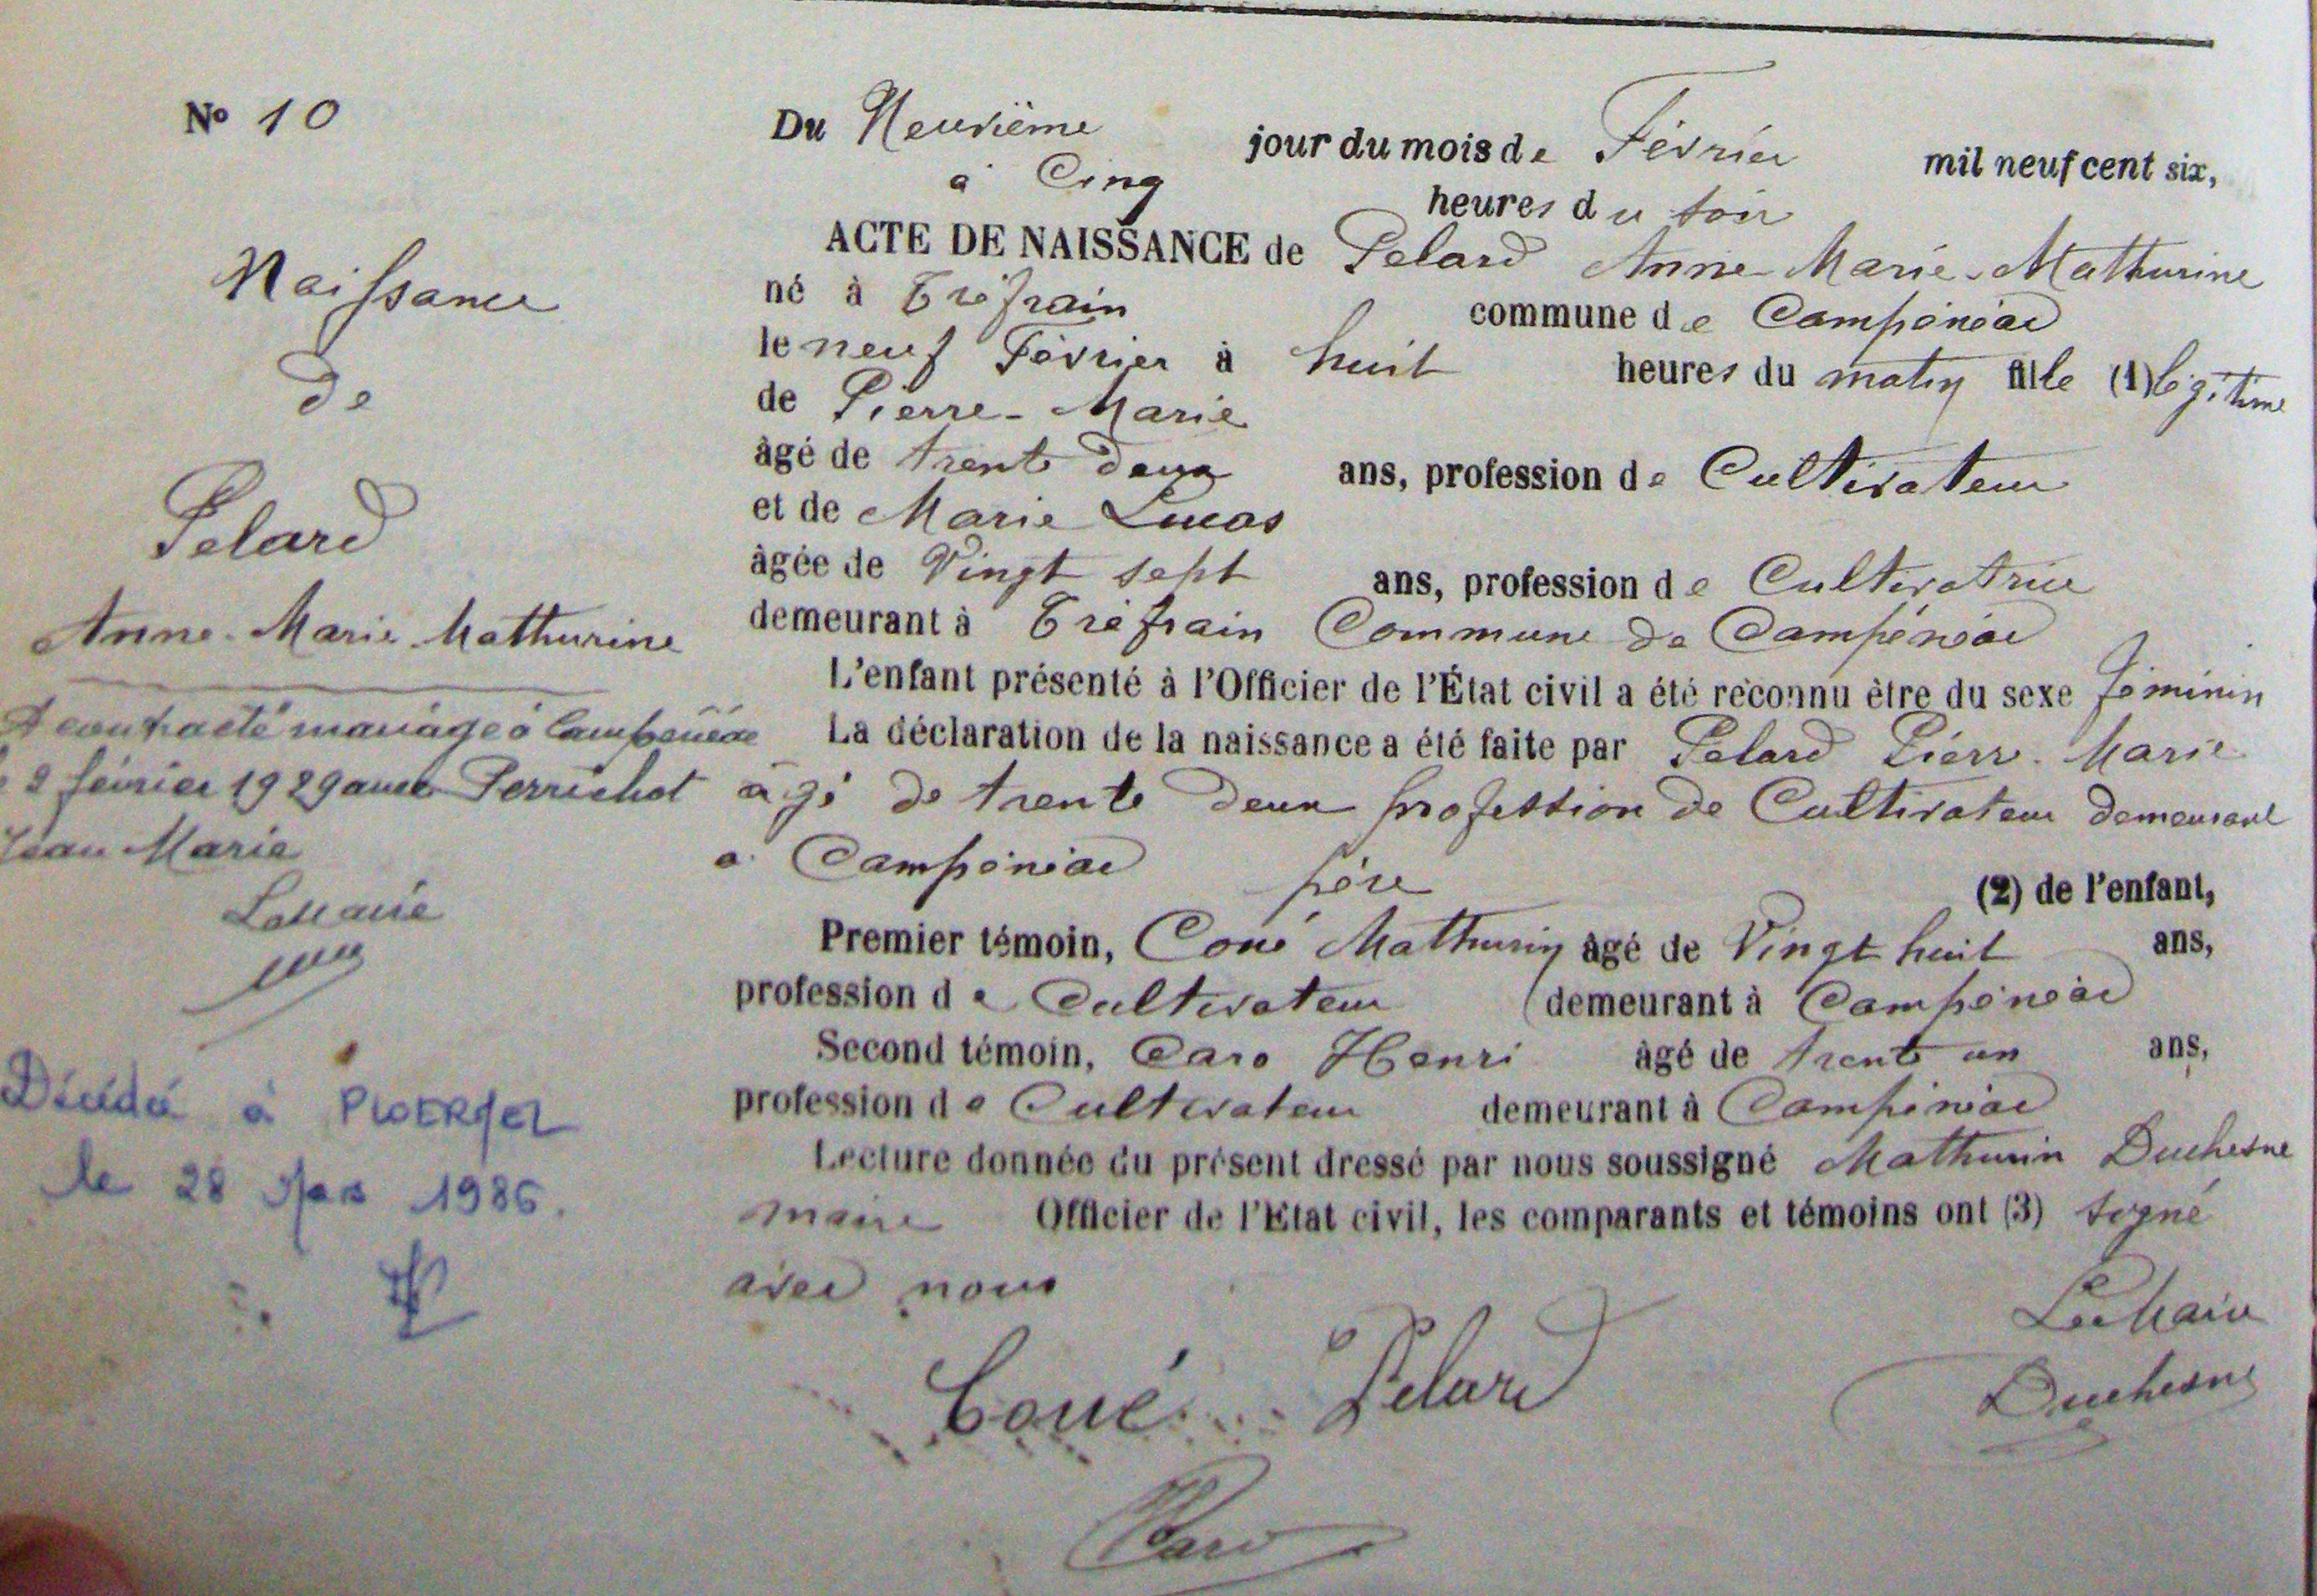 N° 10
Naissance
de
Pelard
Anne-Marie Mathurine
A contracté mariage à Campénéac
le 2 février 1929 avec Perrichot
Jean Marie
Le Maire
Décédée à PLOERMEL
le 28 Mars 1986.
Du Neuvième jour du mois de Février mil neuf cent six,
à Cinq heures du soir
ACTE DE NAISSANCE de Pelard Anne-Marie-Mathurine
né à Tréfrain commune de Campénéac
le neuf Février à huit heures du matin fille (1) légitime
de Pierre-Marie
âgé de trente deux ans, profession de Cultivateur
et de Marie Lucas
âgée de Vingt sept ans, profession de Cultivatrice
demeurant à Tréfrain Commune de Campénéac
L'enfant présenté à l'Officier de l'État civil a été reconnu être du sexe féminin
La déclaration de la naissance a été faite par Pelard Pierre-Marie
âgé de trente deux profession de Cultivateur demeurant
à Campénéac père (2) de l'enfant,
Premier témoin, Coué Mathurin âgé de Vingt huit ans,
profession de Cultivateur demeurant à Campénéac
Second témoin, Caro Henri âgé de trente un ans,
profession de Cultivateur demeurant à Campénéac
Lecture donnée du présent dressé par nous soussigné Mathurin Duchesne
maire Officier de l'Etat civil, les comparants et témoins ont (3) signé
avec nous
Le Maire
Coué Pelard Duchesne
HCaro